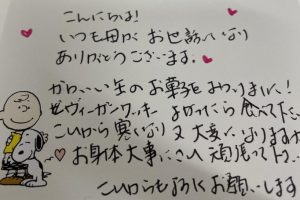 こんにちは!
いつも母がお世話になり
ありがとうございます。
かわいい缶のお菓子をみつけました!
ヴィーガンクッキー よかったら食べて下さい
これから寒くなり又大変になりますが
お身体大事にされ頑張って下さい
これからもよろしくお願いします